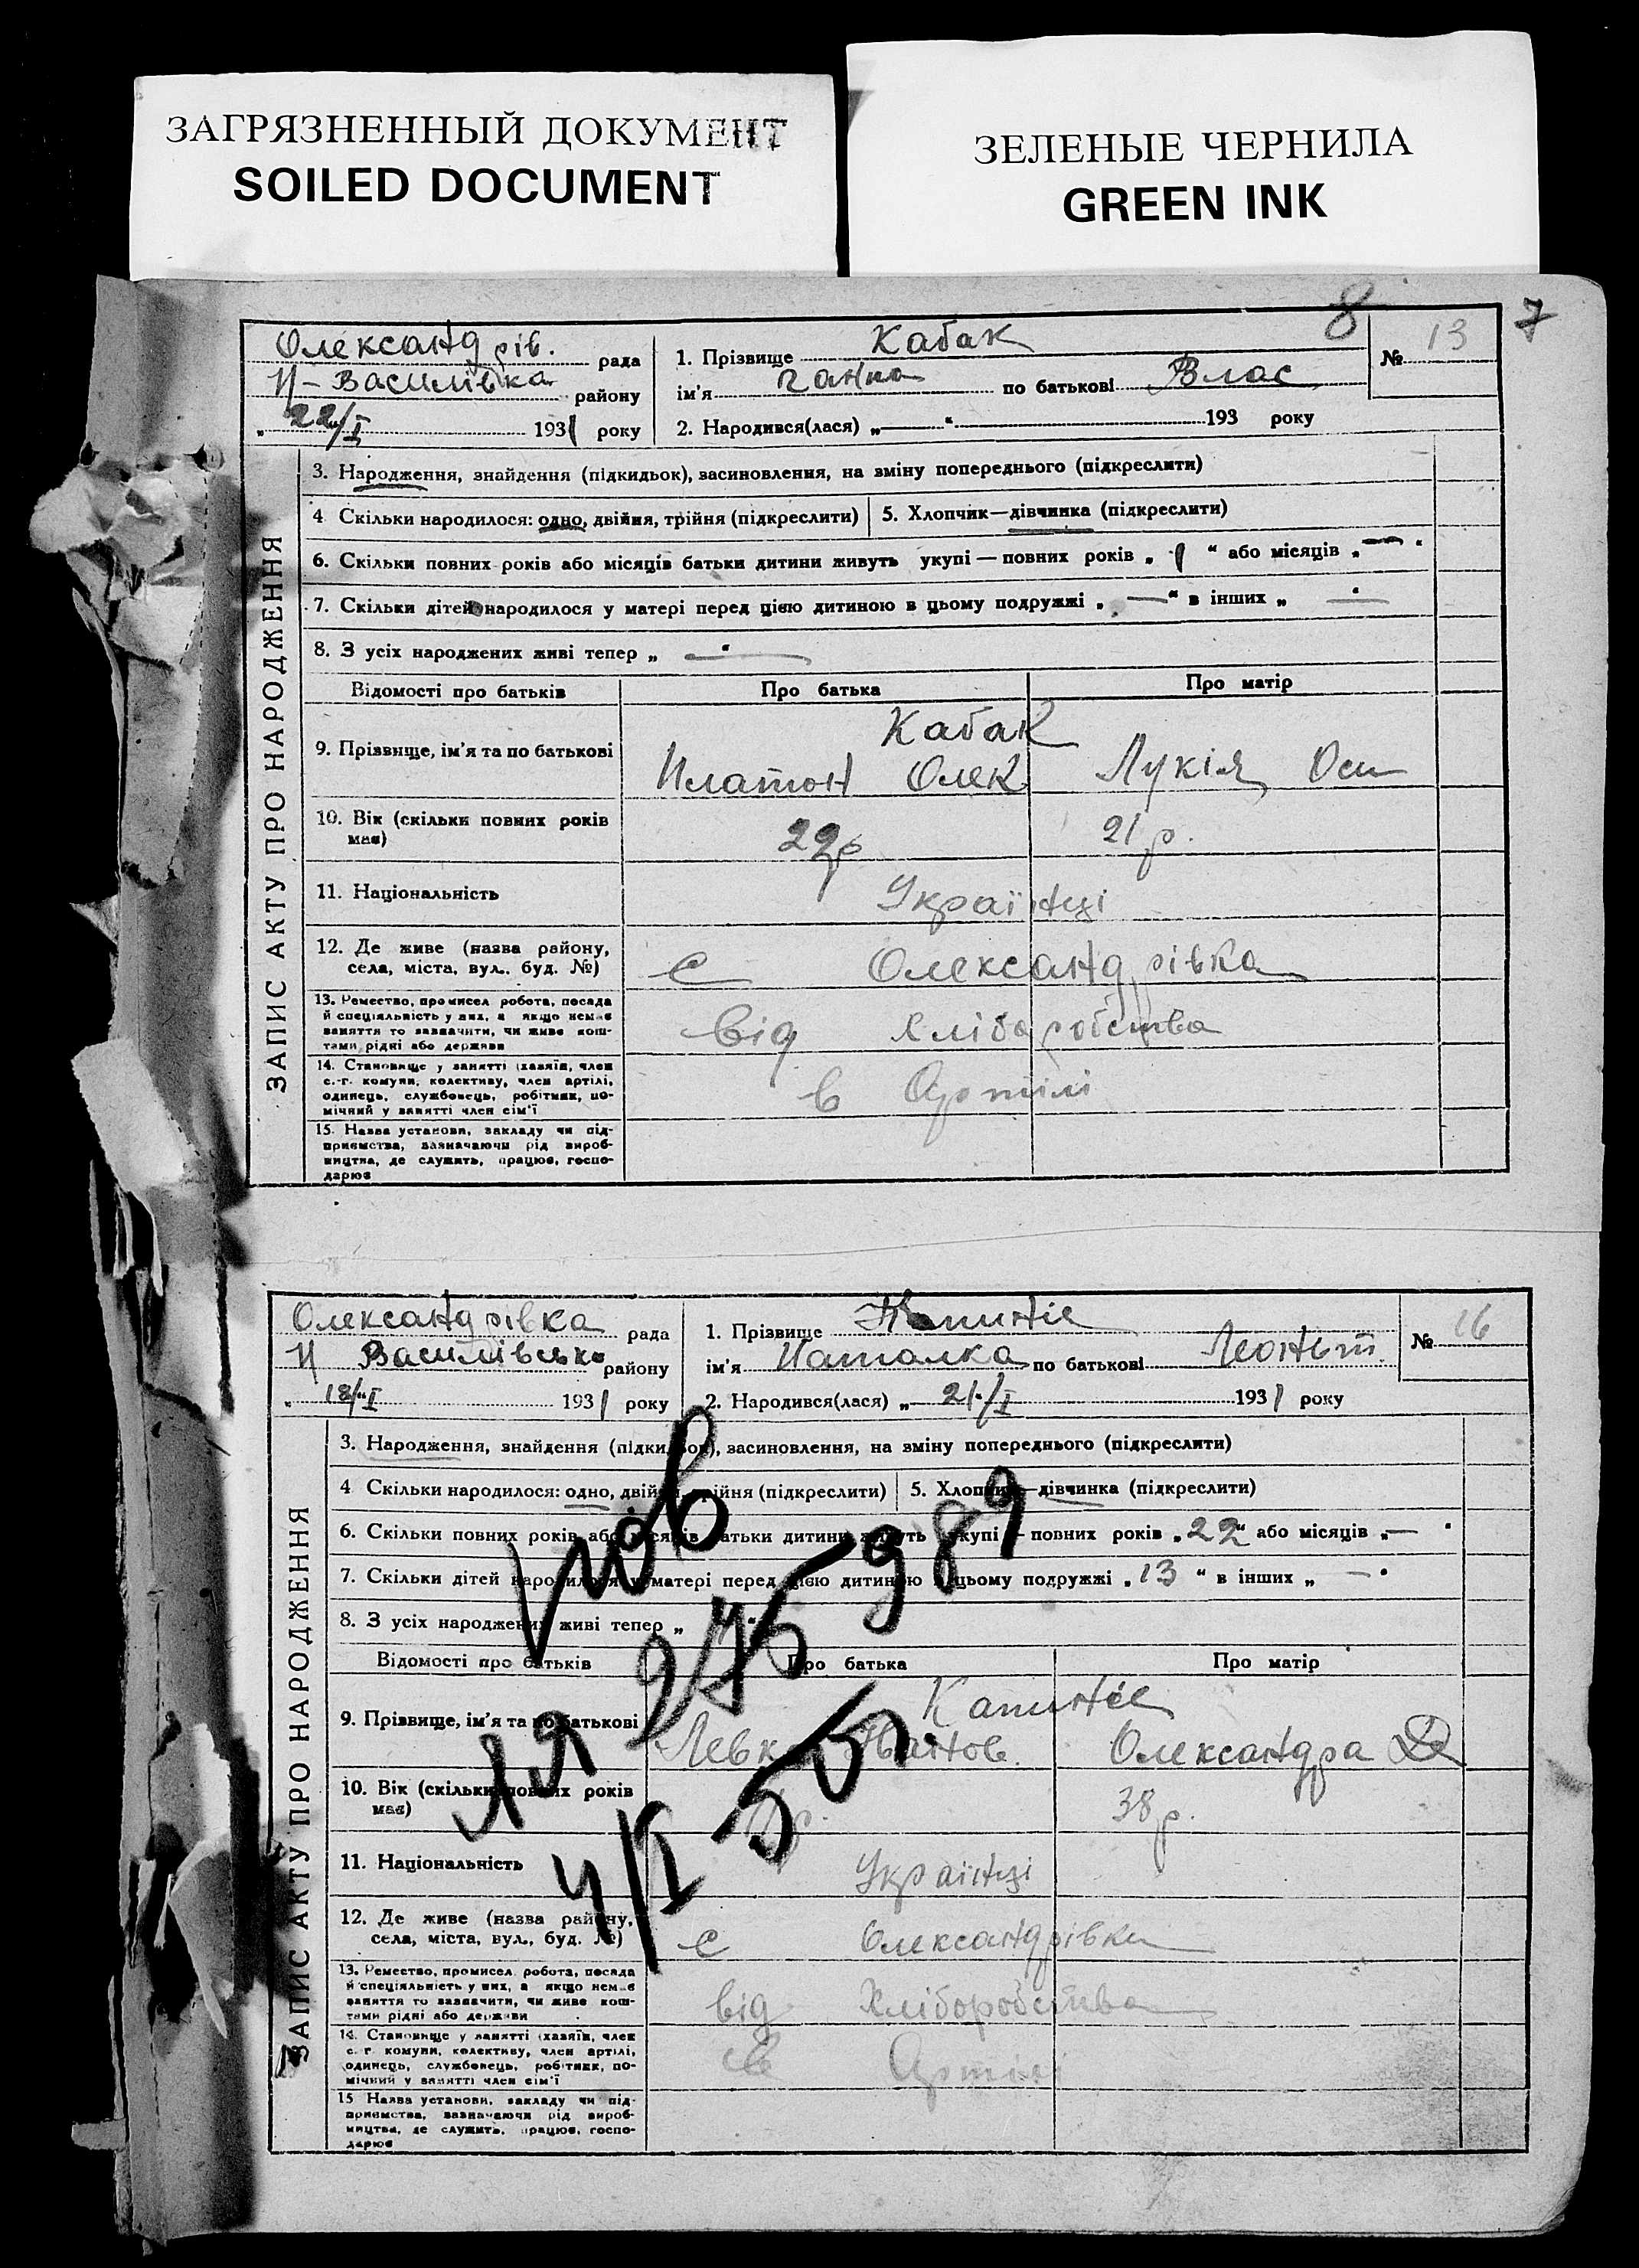 ЗАГРЯЗНЕННЫЙ ДОКУМЕНТ
SOILED DOCUMENT
ЗЕЛЕНЫЕ ЧЕРНИЛА
GREEN INK
8 7
Олександрів. рада
Н-Василівка району
„22/I 1931 року
1. Прізвище Кабак
ім'я Ганна по батькові Влас
№ 13
2. Народився(лася) „ “ 193 року
ЗАПИС АКТУ ПРО НАРОДЖЕННЯ
3. Народження, знайдення (підкидьок), засиновлення, на зміну попереднього (підкреслити)
4 Скільки народилося: одно, двійня, трійня (підкреслити) 5. Хлопчик—дівчинка (підкреслити)
6. Скільки повних років або місяців батьки дитини живуть укупі — повних років „ 1 “ або місяців „ — “
7. Скільки дітей народилося у матері перед цією дитиною в цьому подружжі „ — “ в інших „ — “
8. З усіх народжених живі тепер „ — “
Відомості про батьків Про батька Про матір
Кабак
9. Прізвище, ім'я та по батькові Платон Олек Лукія Оси
10. Вік (скільки повних років має) 22р 21 р.
11. Національність Українці
12. Де живе (назва району, села, міста, вул. буд. №) с Олександрівка
13. Ремество, промисел робота, посада й спеціяльність у них, а якщо немає заняття то зазначити, чи живе коштами рідні або держави від Хліборобства
14. Становище у занятті (хазяїн, член с.-г. комуни, колективу, член артілі, одинець, службовець, робітник, помічний у занятті член сім'ї в Артілі
15. Назва установи, закладу чи підприємства, зазначаючи рід виробництва, де служить, працює, господарює
Олександрівка рада
Н Василівсько району
„18/I 1931 року
1. Прізвище
ім'я Наталка по батькові Леонт.
№ 16
2. Народився(лася) „ 21/I 1931 року
ЗАПИС АКТУ ПРО НАРОДЖЕННЯ
3. Народження, знайдення (підкидьок), засиновлення, на зміну попереднього (підкреслити)
4 Скільки народилося: одно, двійня, трійня (підкреслити) 5. Хлопчик—дівчинка (підкреслити)
6. Скільки повних років або місяців батьки дитини живуть укупі — повних років „22“ або місяців „—“
7. Скільки дітей народилося у матері перед цією дитиною в цьому подружжі „13“ в інших „—“
8. З усіх народжених живі тепер „
Відомості про батьків Про батька Про матір
9. Прізвище, ім'я та по батькові Левко Іванов. Олександра
10. Вік (скільки повних років має) 38 р.
11. Національність Українці
12. Де живе (назва району, села, міста, вул., буд. №) с Олександрівка
13. Ремество, промисел робота, посада й спеціяльність у них, а якщо немає заняття то зазначити, чи живе коштами рідні або держави від Хліборобства
14. Становище у занятті (хазяїн, член с.-г. комуни, колективу, член артілі, одинець, службовець, робітник, помічний у занятті член сім'ї в Артілі
15 Назва установи, закладу чи підприємства, зазначаючи рід виробництва, де служить, працює, господарює
ЯЯ 275989
4/I 55